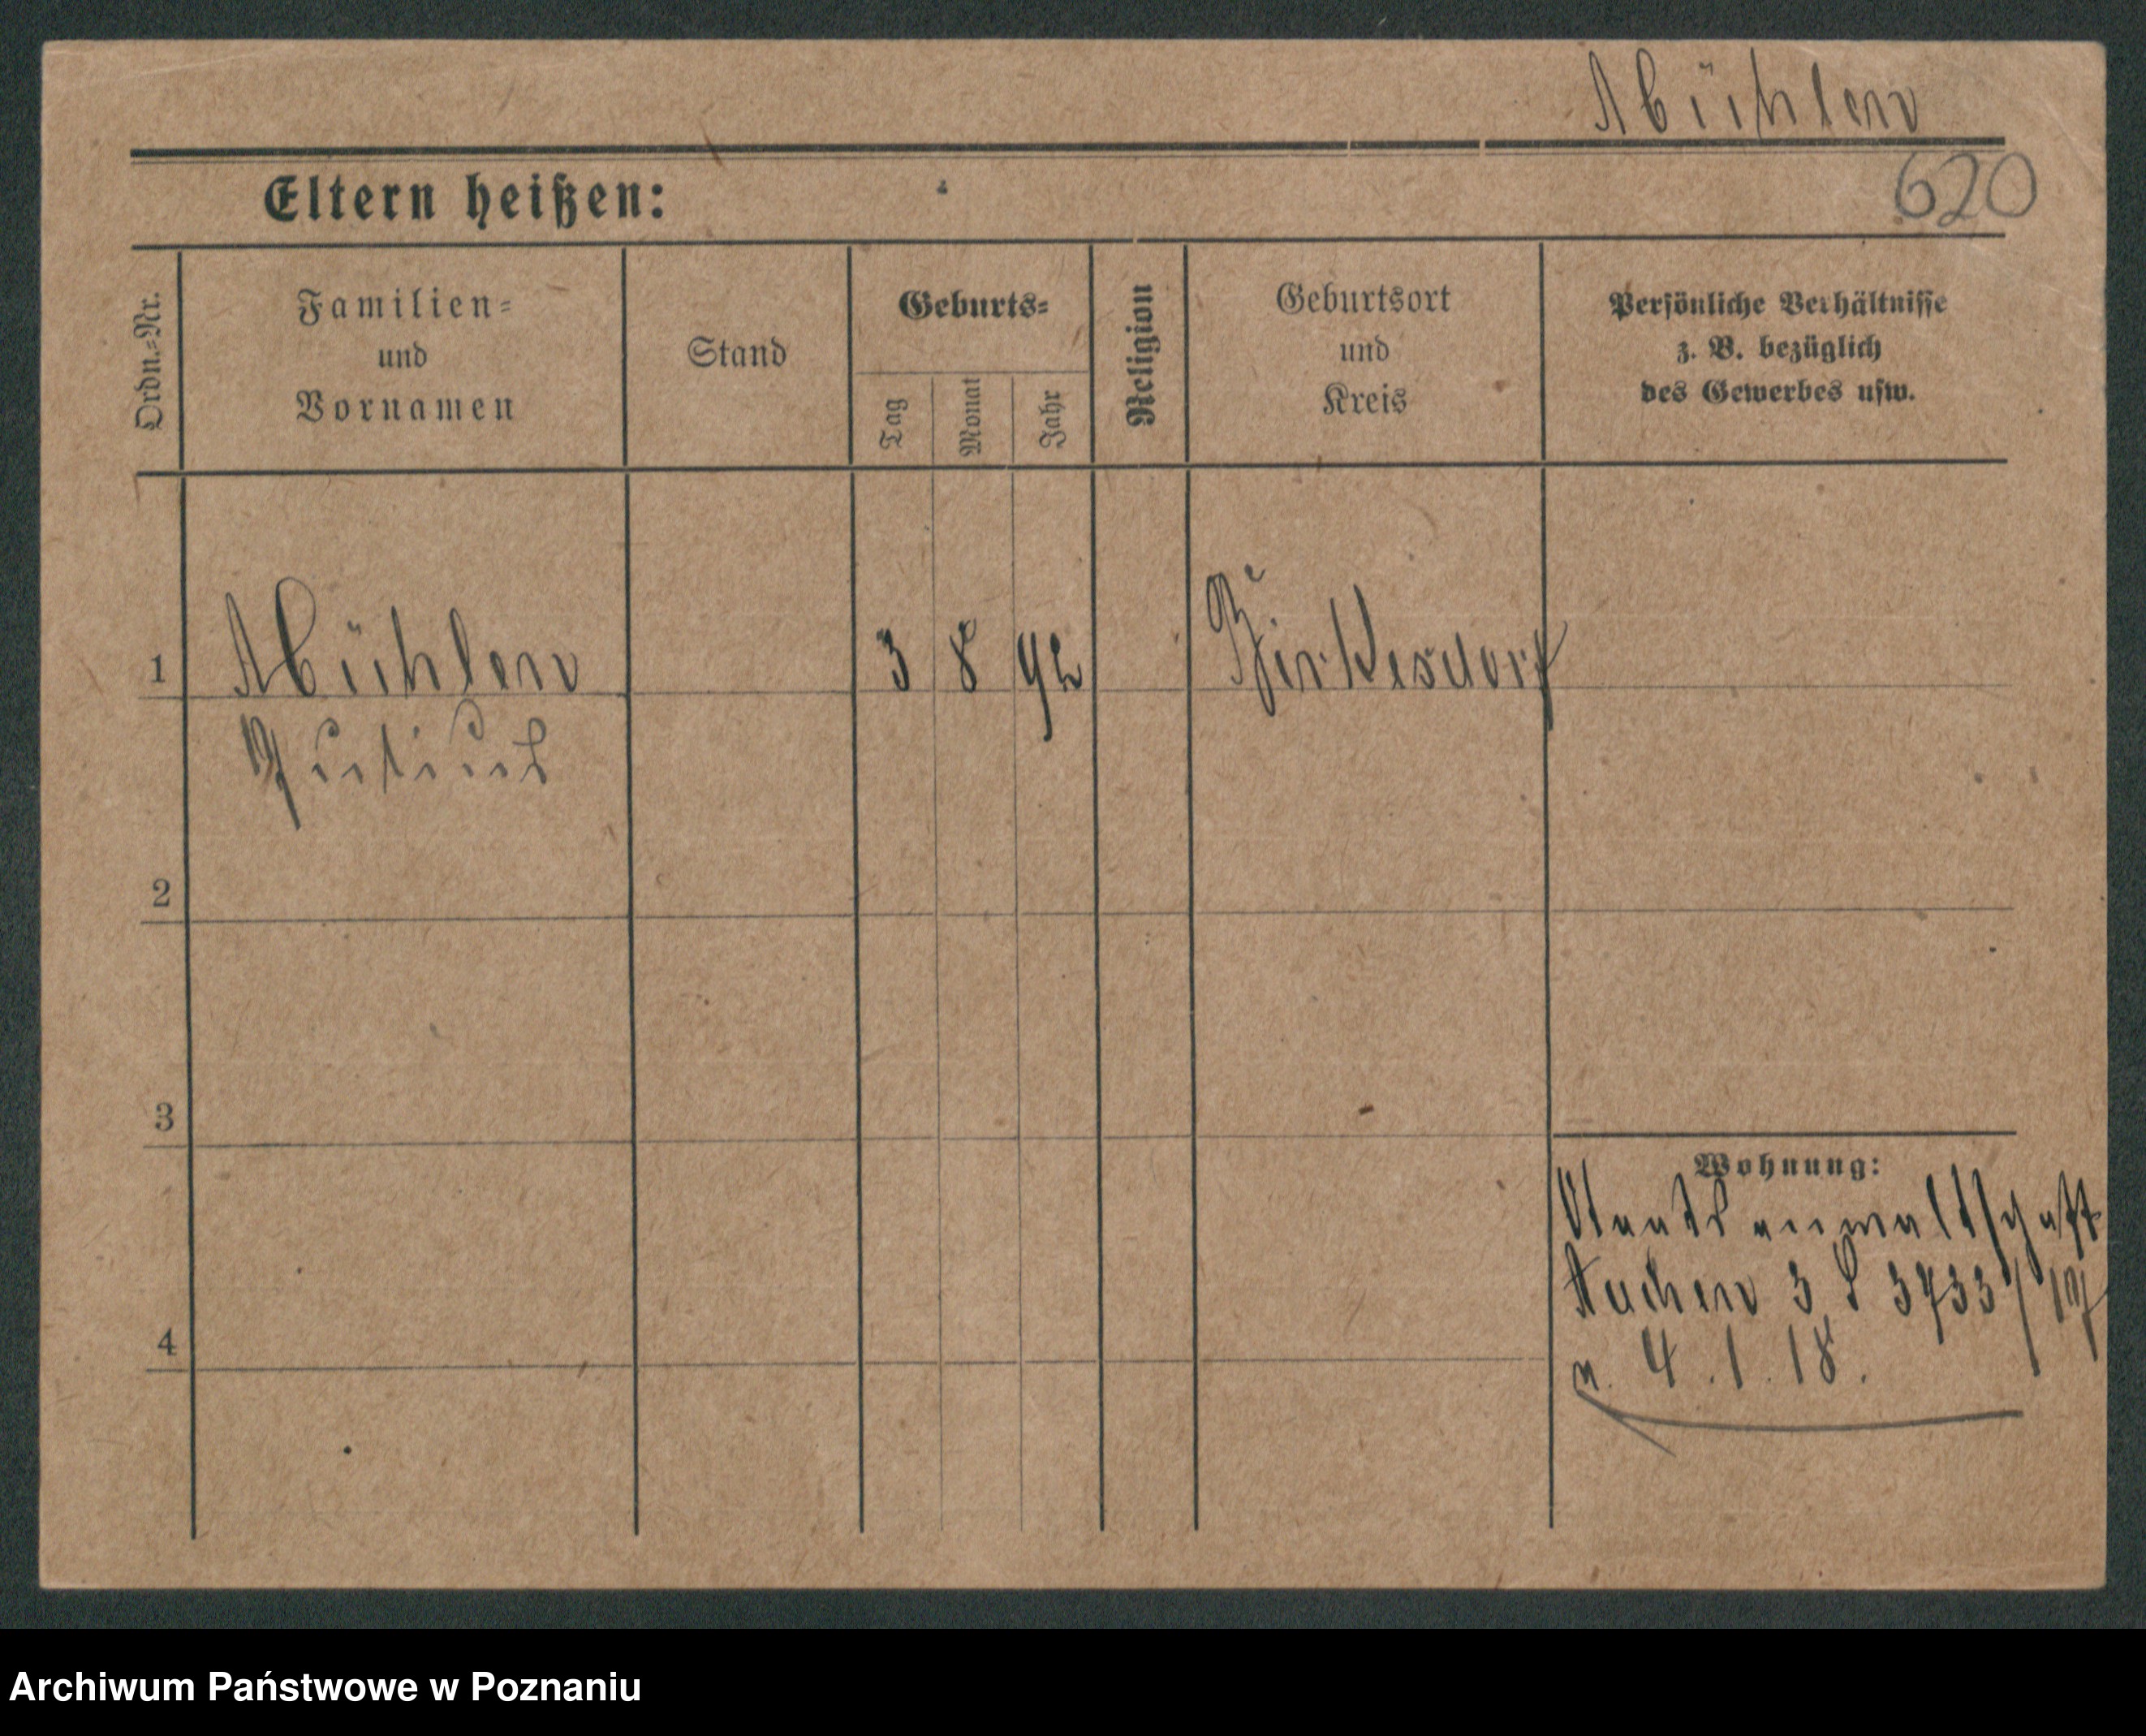 Mühlen
620
Eltern heißen:
Ordn.-Nr.
Familien-
und
Vornamen
Stand
Geburts-
Tag
Monat
Jahr
Religion
Geburtsort
und
Kreis
Persönliche Verhältnisse
z. B. bezüglich
des Gewerbes usw.
1
Mühlen
3 8 92
Birkesdorf
2
3
4
Wohnung:
Staatsanwaltschaft
Aachen 3 J 3733/17
v. 4.1.18.
Archiwum Państwowe w Poznaniu